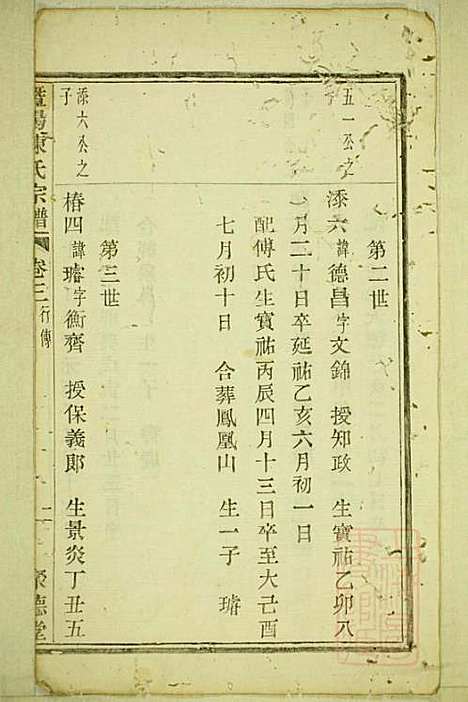 第二世
五一公之子
添六諱德昌字文錦 授知政 生寶祐乙卯八
月二十日卒延祐乙亥六月初一日
配傅氏生寶祐丙辰四月十三日卒至大己酉
七月初十日 合葬鳳凰山 生一子 璿
第三世
添六公之子
椿四諱璿字衡齊 授保義郎 生景炎丁丑五
暨陽陳氏宗譜 卷三 行傳 聚德堂